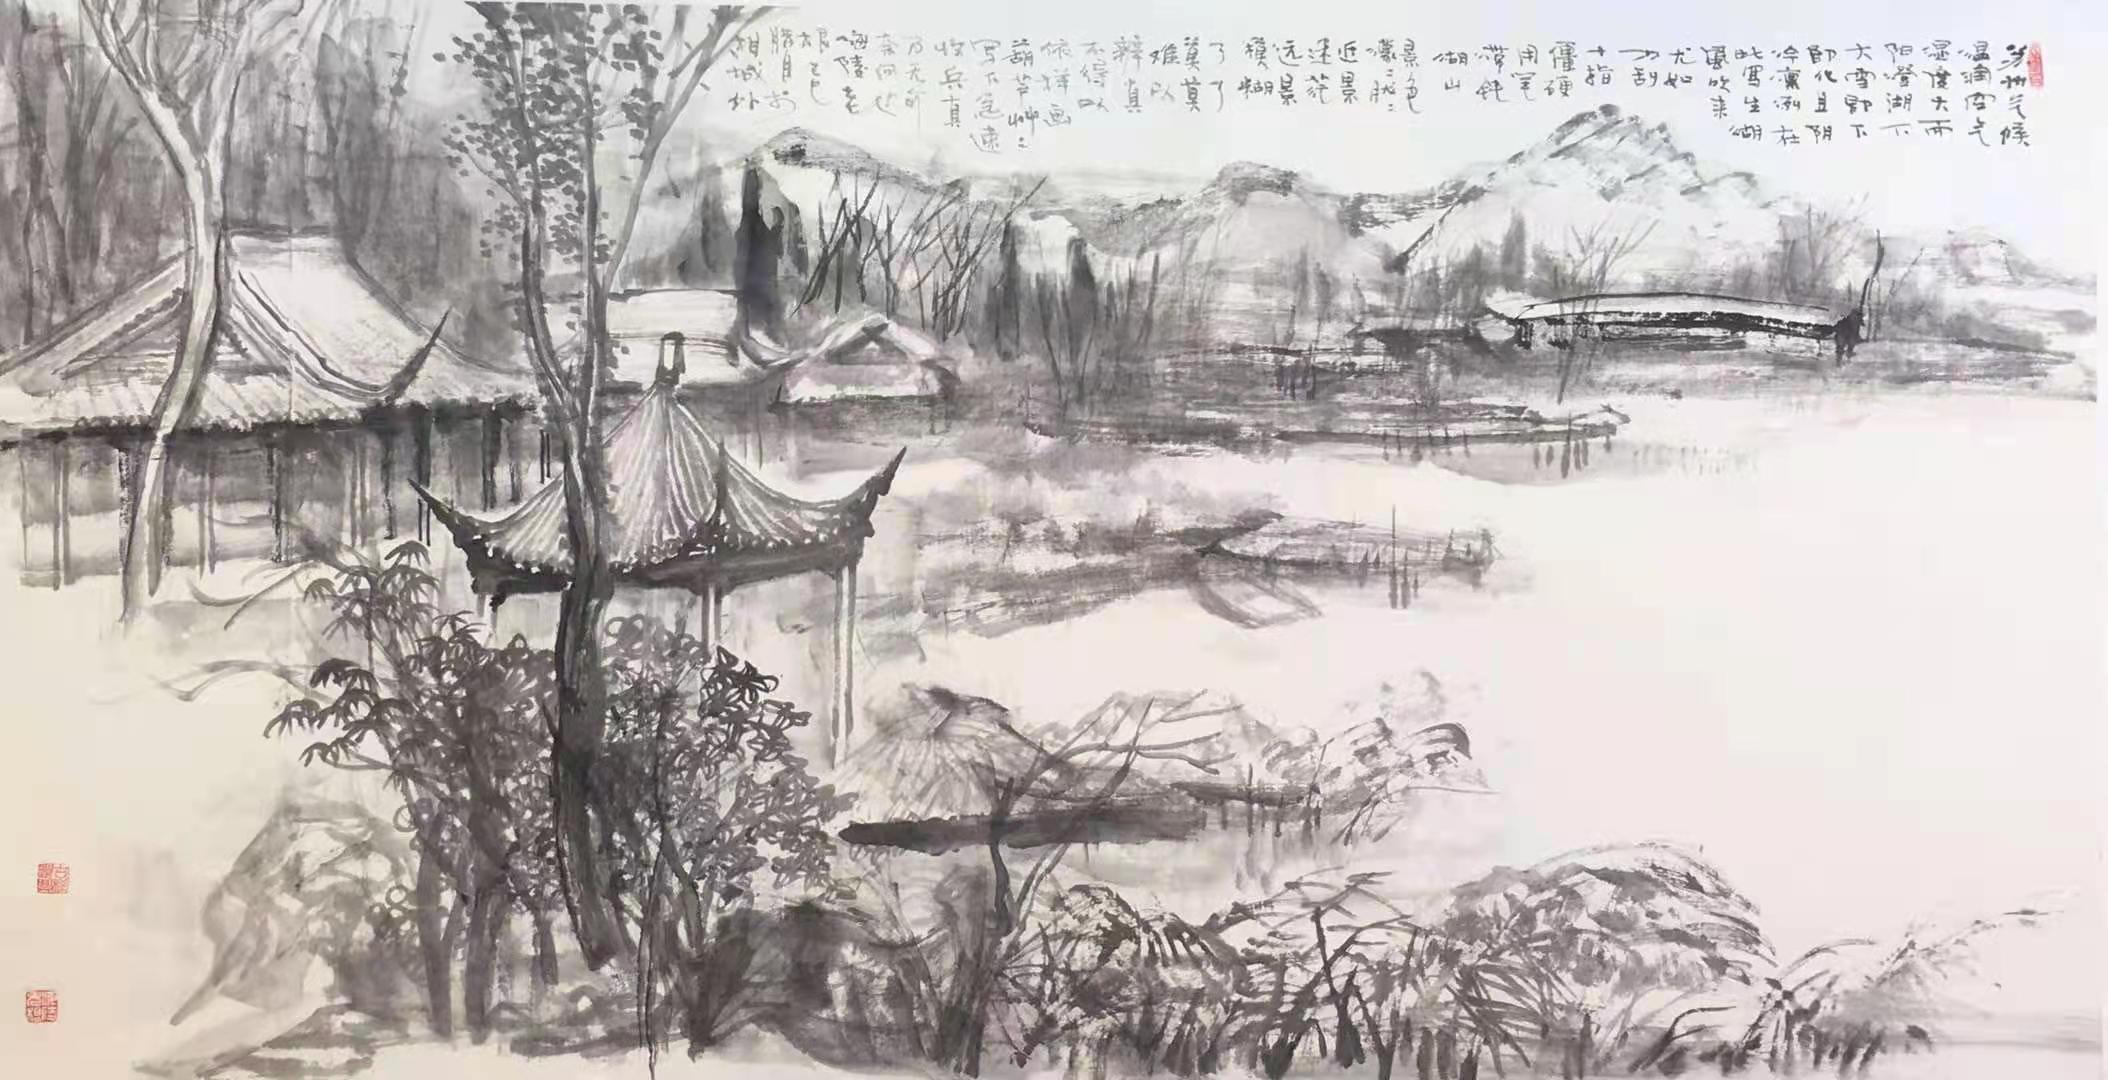 苏州气候
温润空气
湿度大而
阳澄湖下
大雪即下
即化且阴
冷凛冽在
此写生湖
风吹来
尤如
刀刮
十指
僵硬
用笔
滞钝
湖山
景色
濛濛胧胧
近景
迷茫
远景
模糊
了了
莫莫
难以
辩真
不得以
依样画
葫芦草草
写下急速
收兵真
乃无前
奈何也
海陵老
根己巳
腊月于
相城外